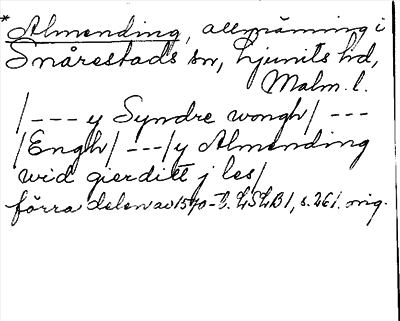 *Almending, allmänning i
Snårestads sn, Ljunits hd,
Malm. l.
/--- y Syndre wongh/ ---
/Engh/ ---/y Almending
wid gierditt j les/
förra delen av 1570-t. LSLB1, s. 261. orig.